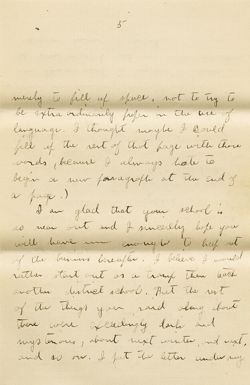 5
merely to fill up space, not to try to
be extraordinarily proper in the use of
language. I thought maybe I could
fill up the rest of that page with those
words, because I always hate to
begin a new paragraph at the end of
a page.)
I am glad that your school is
so near out and I sincerely hope you
will have enough to keep out
of the business. I believe I would
rather start out as a tramp than teach
another district school. But the rest
of the things you said along about
there were exceedingly dark and
mysterious, about next winter, and next,
and so on. I put the letter under my